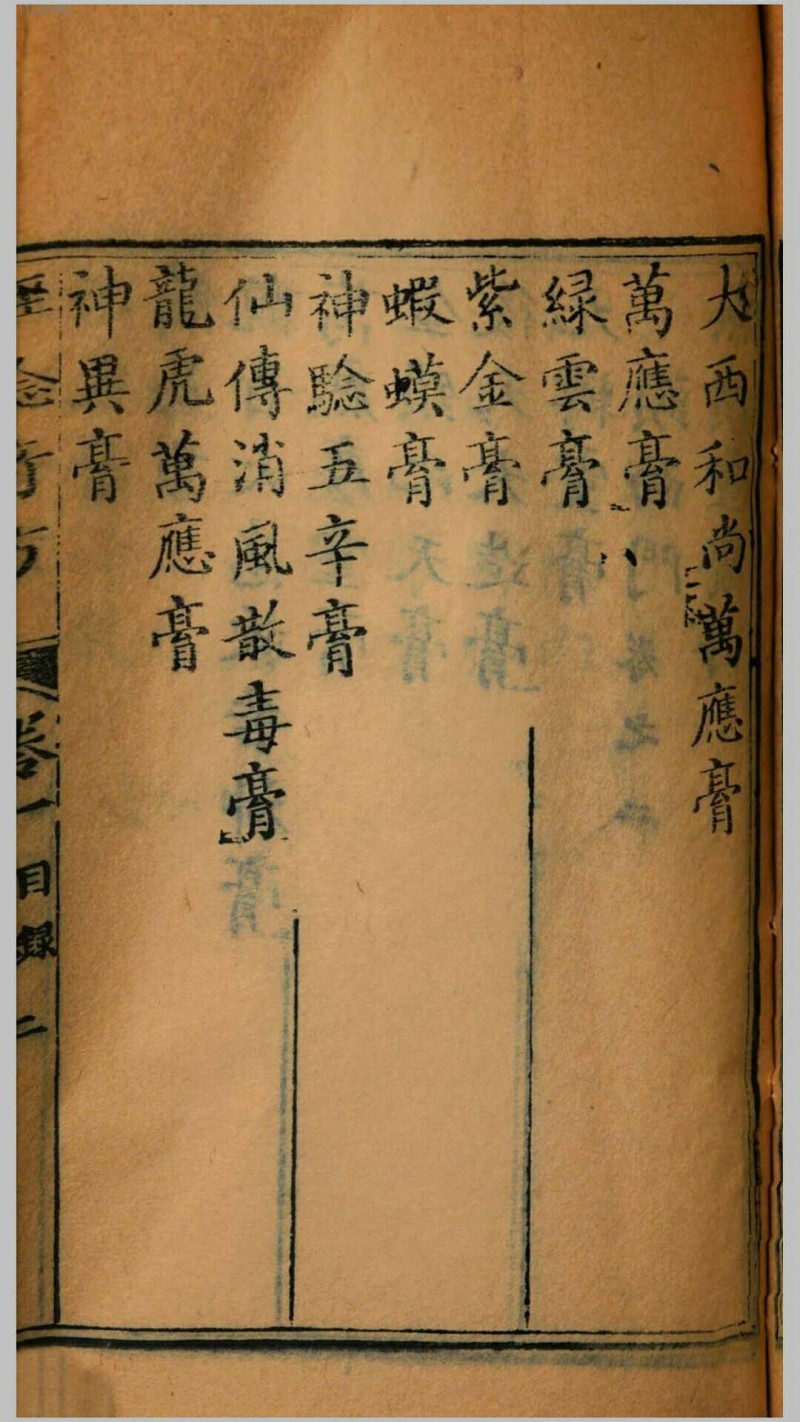 大西和尚萬應膏
萬應膏
緑雲膏
紫金膏
蝦蟆膏
神騐五辛膏
仙傳消風散毒膏
龍虎萬應膏
神異膏
卷一 目録 二